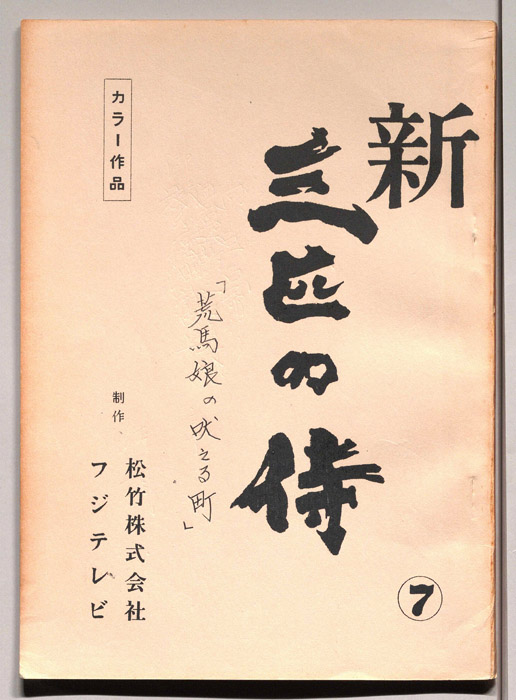 新
三匹の侍
⑦
「荒馬娘の吠える町」
カラー作品
制作
松竹株式会社
フジテレビ